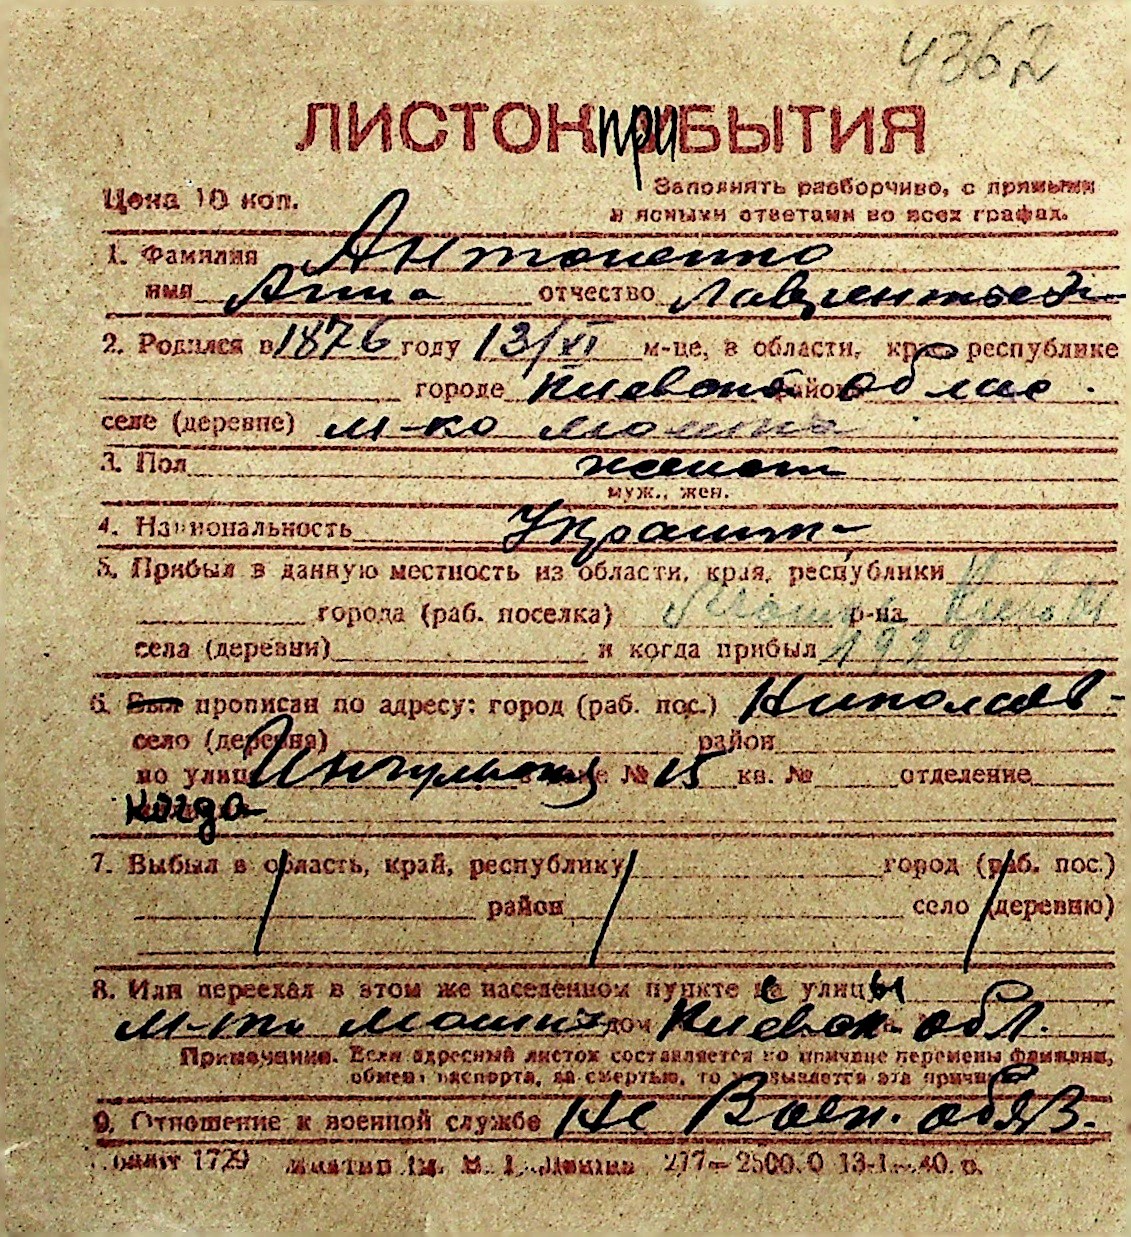 4362
ЛИСТОК приБЫТИЯ
Цена 10 коп.
Заполнять разборчиво, с прямыми
и ясными ответами во всех графах.
1. Фамилия Антоненко
имя Анна отчество Лаврентьев
2. Родился в 1876 году 13/XI м-це, в области, крае, республике
городе Киевской районе облас.
селе (деревне) м-ко Мошна
3. Пол женск
муж., жен.
4. Национальность Украин-
5. Прибыл в данную местность из области, края, республики
города (раб. поселка) р-на
села (деревни) и когда прибыл 1929
6. Был прописан по адресу: город (раб. пос.) Николаев-
село (деревня) район
по улице Ингульская доме № 15 кв. № отделение
когда
7. Выбыл в область, край, республику город (раб. пос.)
район село (деревню)
8. Или переехал в этом же населенном пункте с улицы
м-ко Мошна дом Киевск. обл.
Примечание. Если адресный листок составляется по причине перемены фамилии,
обмена паспорта, за смертью, то указывается эта причина
9. Отношение к военной службе Не Воен. обяз.
1729 277—2500.0 13-1—40 р.